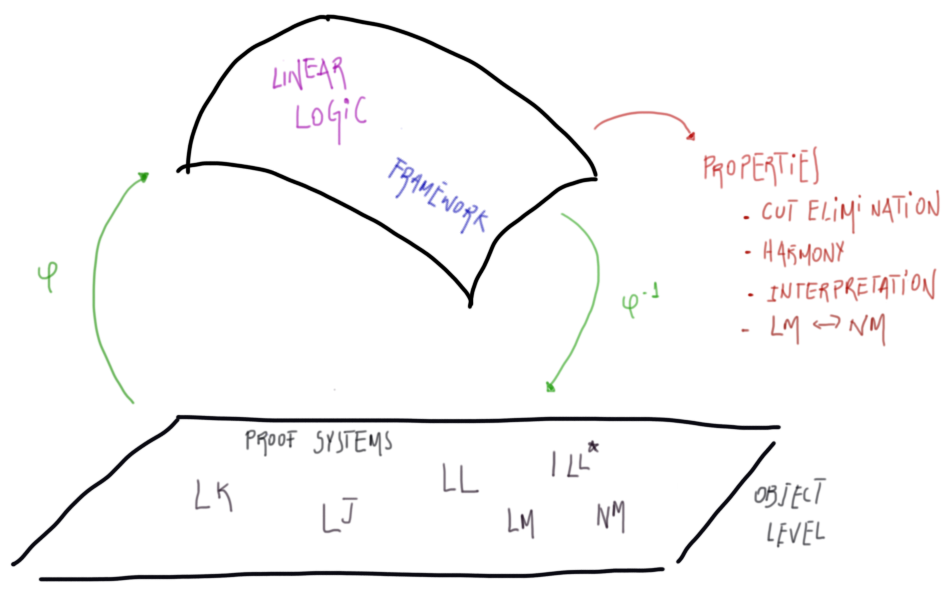 LINEAR
LOGIC
FRAMEWORK
PROPERTIES
- CUT ELIMINATION
- HARMONY
- INTERPRETATION
- LM ↔ NM
φ
φ⁻¹
PROOF SYSTEMS
LK
LJ
LL
ILL*
LM
NM
OBJECT
LEVEL